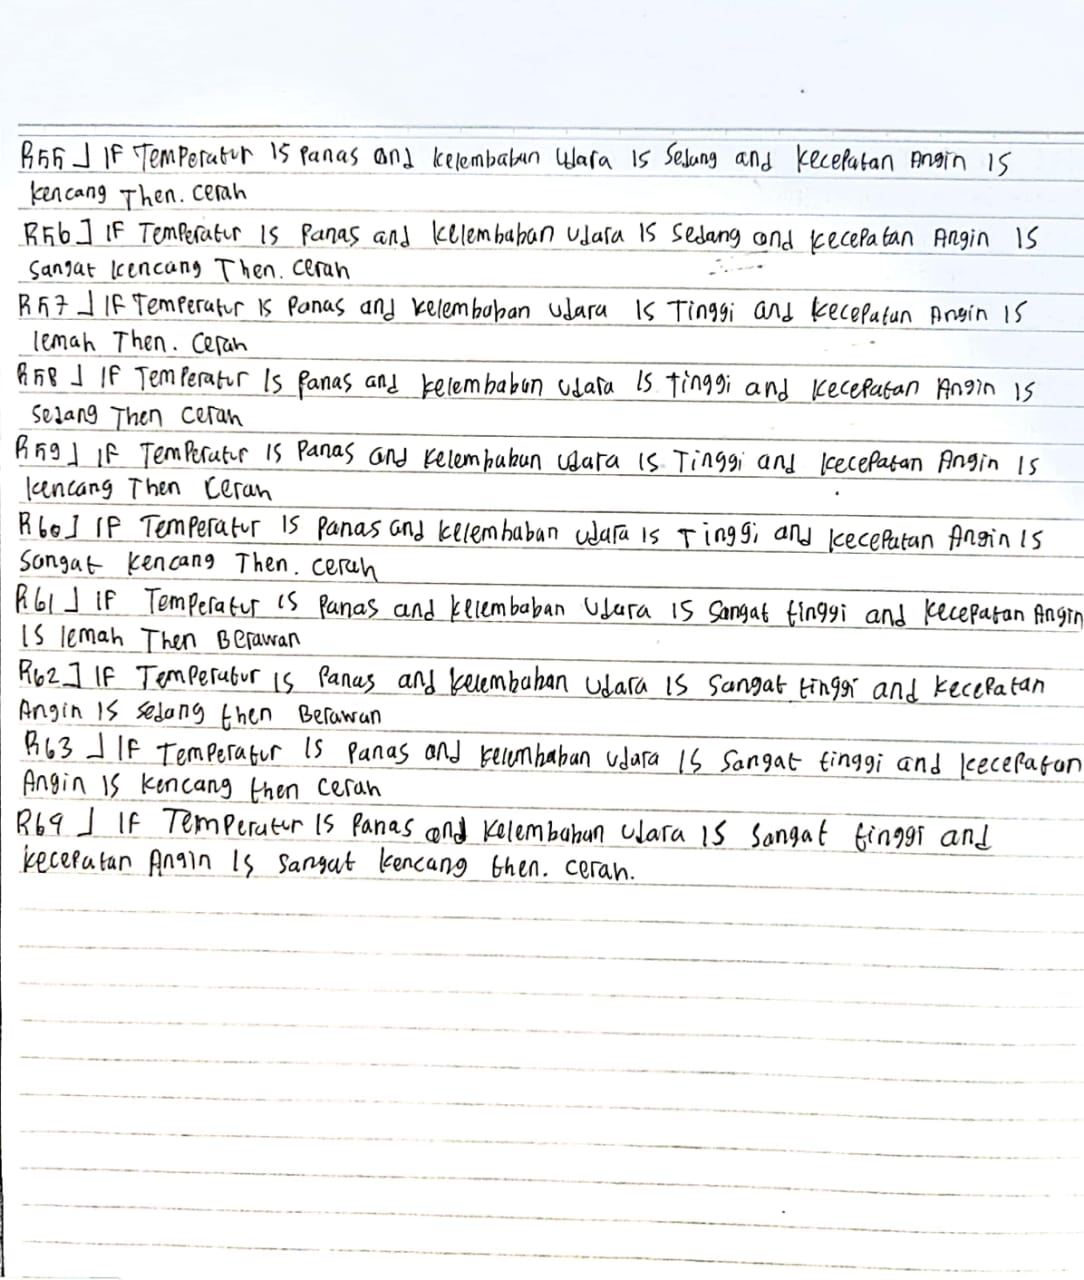 R55] IF Temperatur Is Panas and kelembaban Udara Is Sedang and kecepatan Angin Is
kencang Then. Cerah
R56] IF Temperatur Is Panas and kelembaban Udara Is Sedang and kecepatan Angin Is
Sangat kencang Then. Cerah
R57] IF Temperatur Is Panas and kelembaban Udara Is Tinggi and kecepatan Angin Is
lemah Then. Cerah
R58] IF Temperatur Is Panas and kelembaban Udara Is tinggi and kecepatan Angin Is
Sedang Then Cerah
R59] IF Temperatur Is Panas and kelembaban Udara Is Tinggi and kecepatan Angin Is
kencang Then Cerah
R60] IF Temperatur Is Panas and kelembaban udara Is Tinggi and kecepatan Angin Is
Sangat kencang Then. Cerah
R61] IF Temperatur Is Panas and kelembaban Udara Is Sangat tinggi and kecepatan Angin
Is lemah Then Berawan
R62] IF Temperatur Is Panas and kelembaban Udara Is Sangat tinggi and kecepatan
Angin Is sedang then Berawan
R63] IF Temperatur Is Panas and kelembaban udara Is Sangat tinggi and kecepatan
Angin Is kencang then Cerah
R69] IF Temperatur Is Panas and kelembaban udara Is Sangat tinggi and
kecepatan Angin Is Sangat kencang then. Cerah.